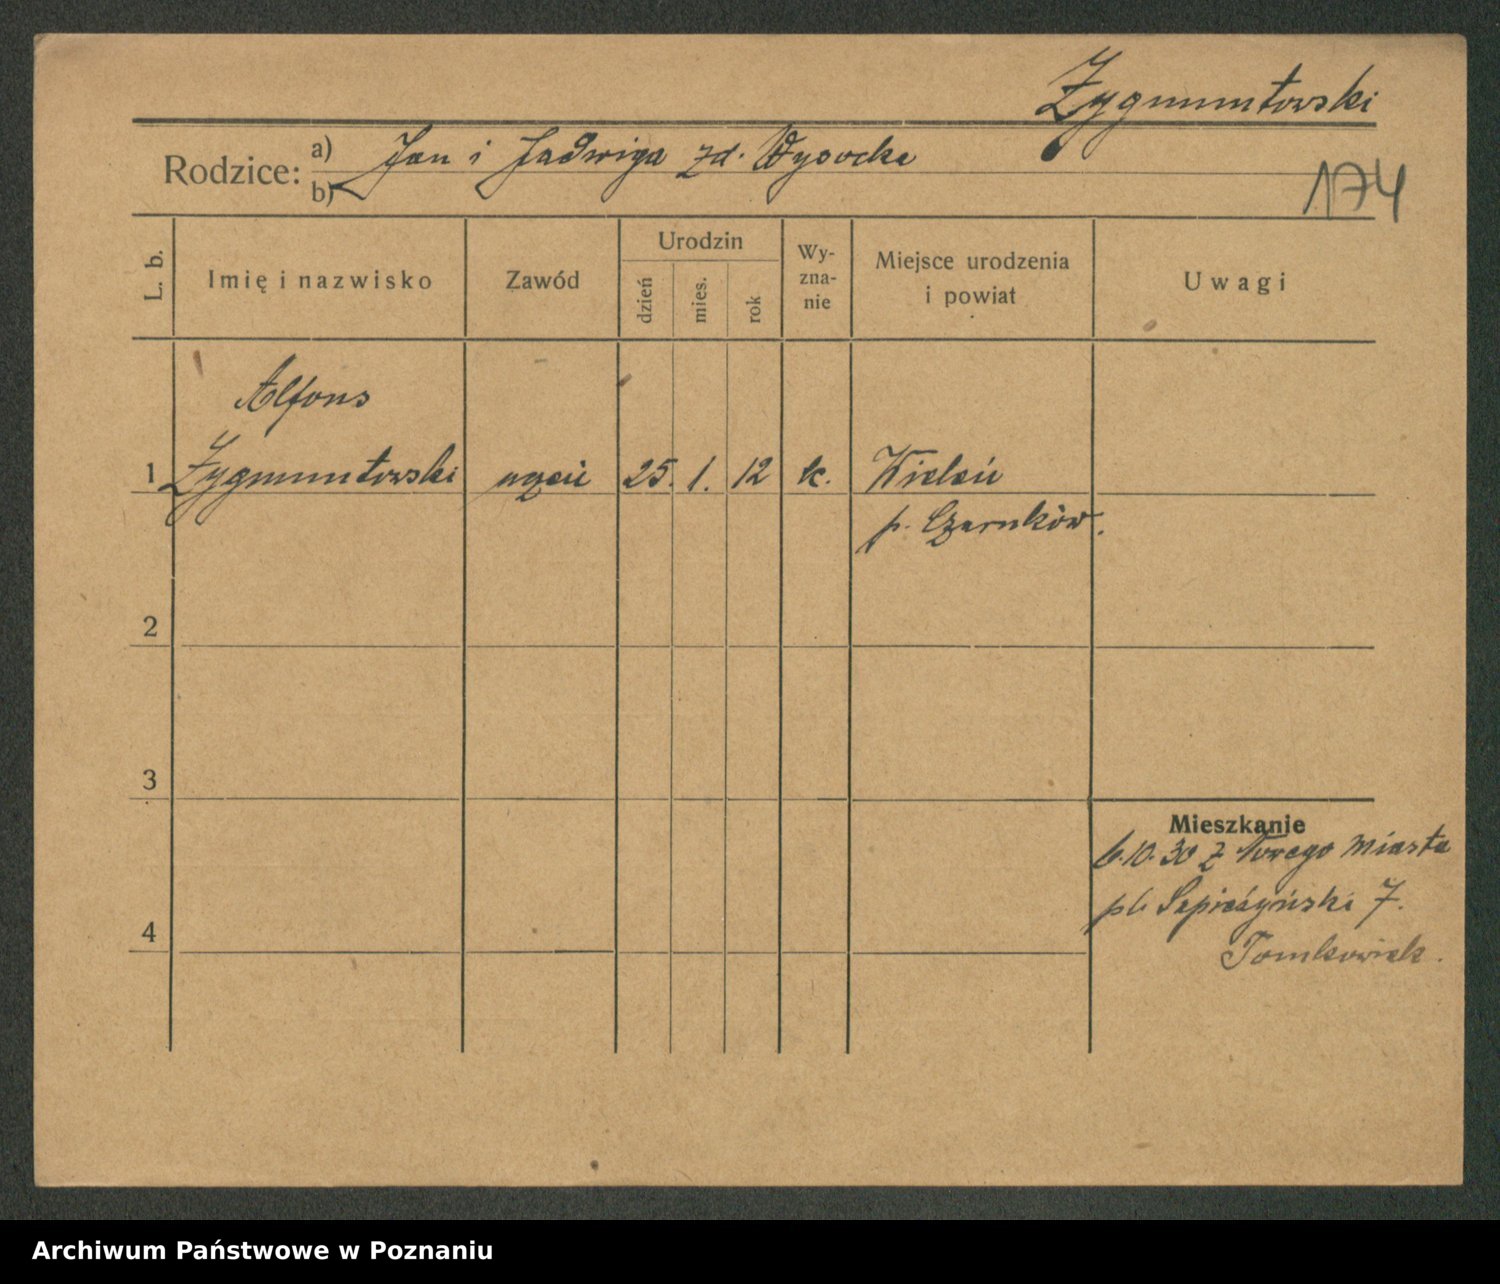 Zygmuntowski
Rodzice: a) Jan i Jadwiga zd. Wysocka
b)
174
L. b.
Imię i nazwisko
Zawód
Urodzin
dzień
mies.
rok
Wy-
zna-
nie
Miejsce urodzenia
i powiat
Uwagi
Alfons
1 Zygmuntowski uczeń 25. 1. 12 k. Wieleń
p. Czarnków.
2
3
4
Mieszkanie
6.10.30 z Nowego Miasta
pl. Sapieżyński 7.
Tomkowiak.
Archiwum Państwowe w Poznaniu